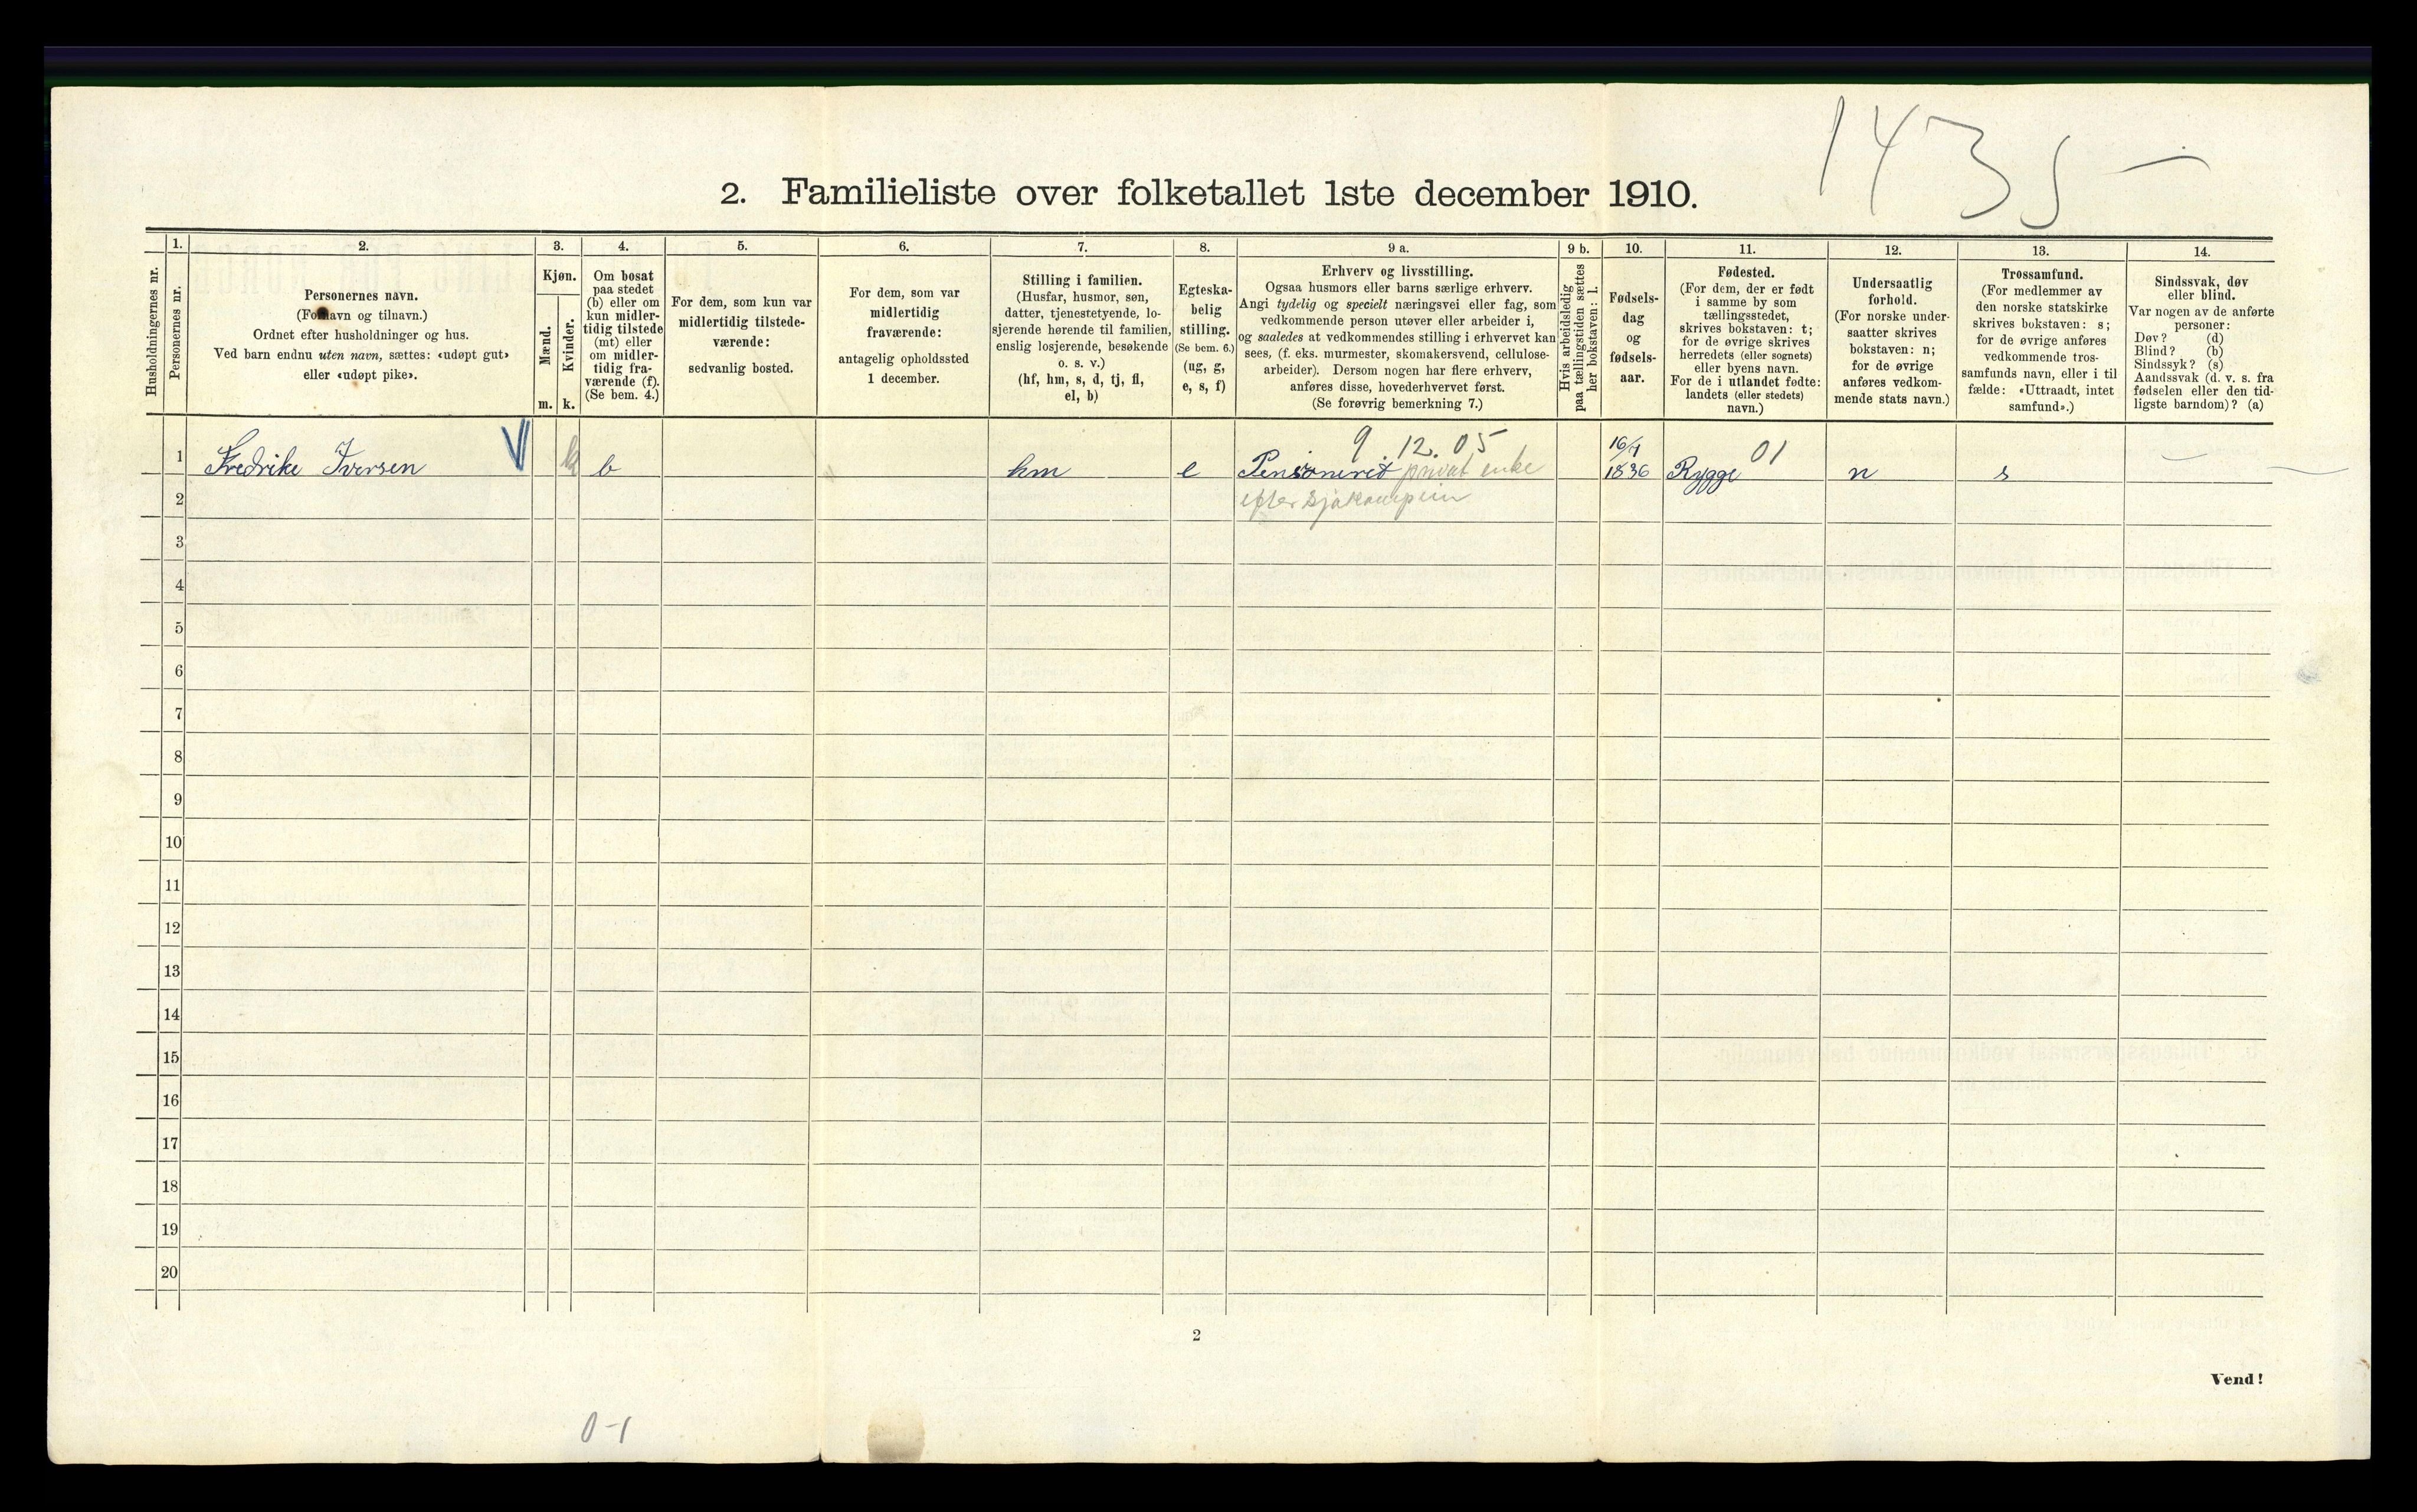 1435 —
2. Familieliste over folketallet 1ste december 1910.
Husholdningernes nr.
1.
Personernes nr.
2.
Personernes navn.
(Fornavn og tilnavn.)
Ordnet efter husholdninger og hus.
Ved barn endnu uten navn, sættes: «udøpt gut»
eller «udøpt pike».
3.
Kjøn.
Mænd.
m.
Kvinder.
k.
4.
Om bosat
paa stedet
(b) eller om
kun midler-
tidig tilstede
(mt) eller
om midler-
tidig fra-
værende (f).
(Se bem. 4.)
5.
For dem, som kun var
midlertidig tilstede-
værende:
sedvanlig bosted.
6.
For dem, som var
midlertidig
fraværende:
antagelig opholdssted
1 december.
7.
Stilling i familien.
(Husfar, husmor, søn,
datter, tjenestetyende, lo-
sjerende hørende til familien,
enslig losjerende, besøkende
o. s. v.)
(hf, hm, s, d, tj, fl,
el, b)
8.
Egteska-
belig
stilling.
(Se bem. 6.)
(ug, g,
e, s, f)
9 a.
Erhverv og livsstilling.
Ogsaa husmors eller barns særlige erhverv.
Angi tydelig og specielt næringsvei eller fag, som
vedkommende person utøver eller arbeider i,
og saaledes at vedkommendes stilling i erhvervet kan
sees, (f. eks. murmester, skomakersvend, cellulose-
arbeider). Dersom nogen har flere erhverv,
anføres disse, hovederhvervet først.
(Se forøvrig bemerkning 7.)
9 b.
Hvis arbeidsledig
paa tællingstiden sættes
her bokstaven: l.
10.
Fødsels-
dag
og
fødsels-
aar.
11.
Fødested.
(For dem, der er født
i samme by som
tællingsstedet,
skrives bokstaven: t;
for de øvrige skrives
herredets (eller sognets)
eller byens navn.
For de i utlandet fødte:
landets (eller stedets)
navn.)
12.
Undersaatlig
forhold.
(For norske under-
saatter skrives
bokstaven: n;
for de øvrige
anføres vedkom-
mende stats navn.)
13.
Trossamfund.
(For medlemmer av
den norske statskirke
skrives bokstaven: s;
for de øvrige anføres
vedkommende tros-
samfunds navn, eller i til
fælde: «Uttraadt, intet
samfund».)
14.
Sindssvak, døv
eller blind.
Var nogen av de anførte
personer:
Døv? (d)
Blind? (b)
Sindssyk? (s)
Aandssvak (d. v. s. fra
fødselen eller den tid-
ligste barndom)? (a)
9.12.05 16/4 01
1 Fredrike Iversen k b hm e Pensioneret privat enke 1836 Rygge n s —
2 efter
3
4
5
6
7
8
9
10
11
12
13
14
15
16
17
18
19
20
2
Vend!
0-1